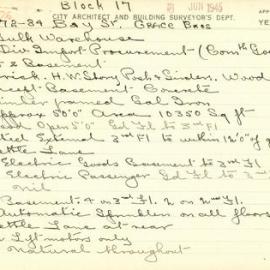 Block 17
JUN 1945
CITY ARCHITECT AND BUILDING SURVEYOR'S DEPT.
YE
72-84 Bay St. Grace Bros
Bulk Warehouse
Div Import Procurement (Com
5 & Basement
Brick. H.W. Story Posts & Girders. Wood
except Basement Concrete
Timber framed Gal Iron
Approx 50'0" Area 10350 Sq ft
Wood Open 5'0" Gd Fl to 3rd Fl
Steel External 3rd Fl to within 12'0" of
Kettle Lane
Electric Goods Basement to 3rd Fl
Electric Passenger Gd Fl to 3rd Fl
Nil
Basement. 4 on 3rd Fl. 2 on 2nd Fl.
Automatic Sprinklers on all floors
Kettle Lane at rear
Lift motors only
Natural throughout